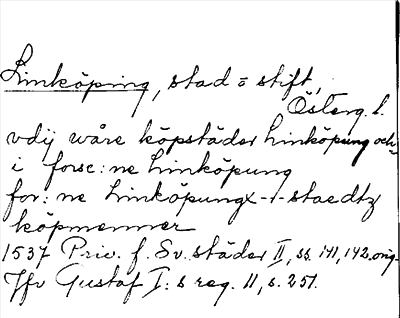 Linköping, stad o stift,
Österg. l.
vdij wåre köpstäder Linköpung och
i forsc:ne Linköpung
for:ne Linköpungx-r-staedtz
köpmenner
1537 Priv. f. Sv. städer II, ss. 141, 142. orig.
Jfr Gustaf I:s reg. 11, s. 251.